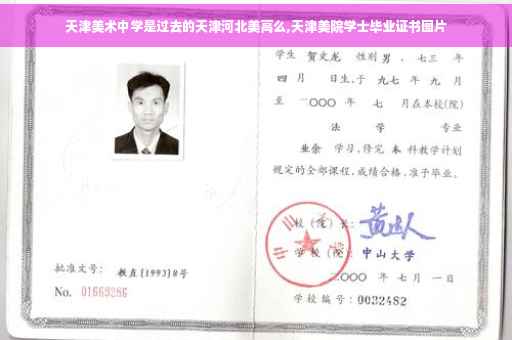 天津美术中学是过去的天津河北美高么,天津美院学士毕业证书图片
学生 贺文龙 性别 男 、七三 年
四 月 日生,于 九七 年 九 月
至 二〇〇〇 年 七 月在本校(院)
法 学 专业
业余 学习,修完 本 科教学计划
规定的全部课程,成绩合格,准予毕业。
校(院)长:
学校(院): 中山大学
二〇〇〇 年 七 月 一 日
学校编号: 0032482
批准文号: 教直[1993]8号
No. 01663286